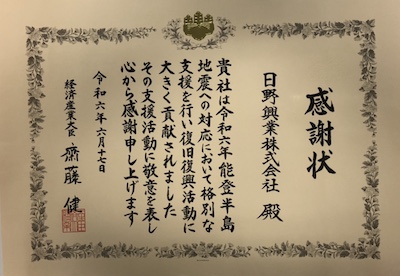 感謝状
日野興業株式会社 殿
貴社は令和六年能登半島
地震への対応において格別な
支援を行い復旧復興活動に
大きく貢献されました
その支援活動に敬意を表し
心から感謝申し上げます
令和六年六月十七日
経済産業大臣 齋藤 健